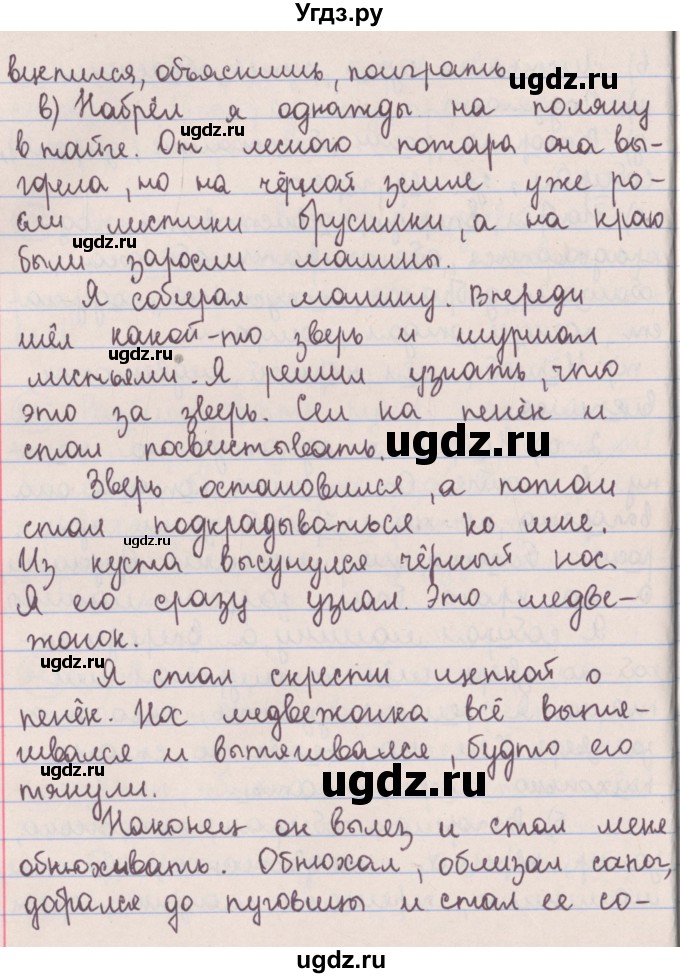 Угдз.ру
вцепился, объяснишь, поиграть.
в) Набрёл я однажды на поляну
в тайге. От лесного пожара она вы-
горела, но на чёрной земле уже ро-
сли листики брусники, а на краю
были заросли малины
Я собирал малину Впереди
шёл какой-то зверь и шуршал
листьями. Я решил узнать, что
это за зверь. Сел на пенёк и
стал посвистывать.
Зверь остановился, а потом
стал подкрадываться ко мне.
Из куста высунулся чёрный нос.
Я его сразу узнал. Это медве-
жонок.
Я стал скрести щепкой о
пенёк. Нос медвежонка всё вытя-
гивался и вытягивался, будто его
тянули.
Наконец он вылез и стал меня
обнюхивать. Обнюхал, облизал сапог,
добрался до пуговицы и стал ее со-
ugdz.ru
ugdz.ru
ugdz.ru
ugdz.ru
ugdz.ru
ugdz.ru
ugdz.ru
ugdz.ru
ugdz.ru
ugdz.ru
ugdz.ru